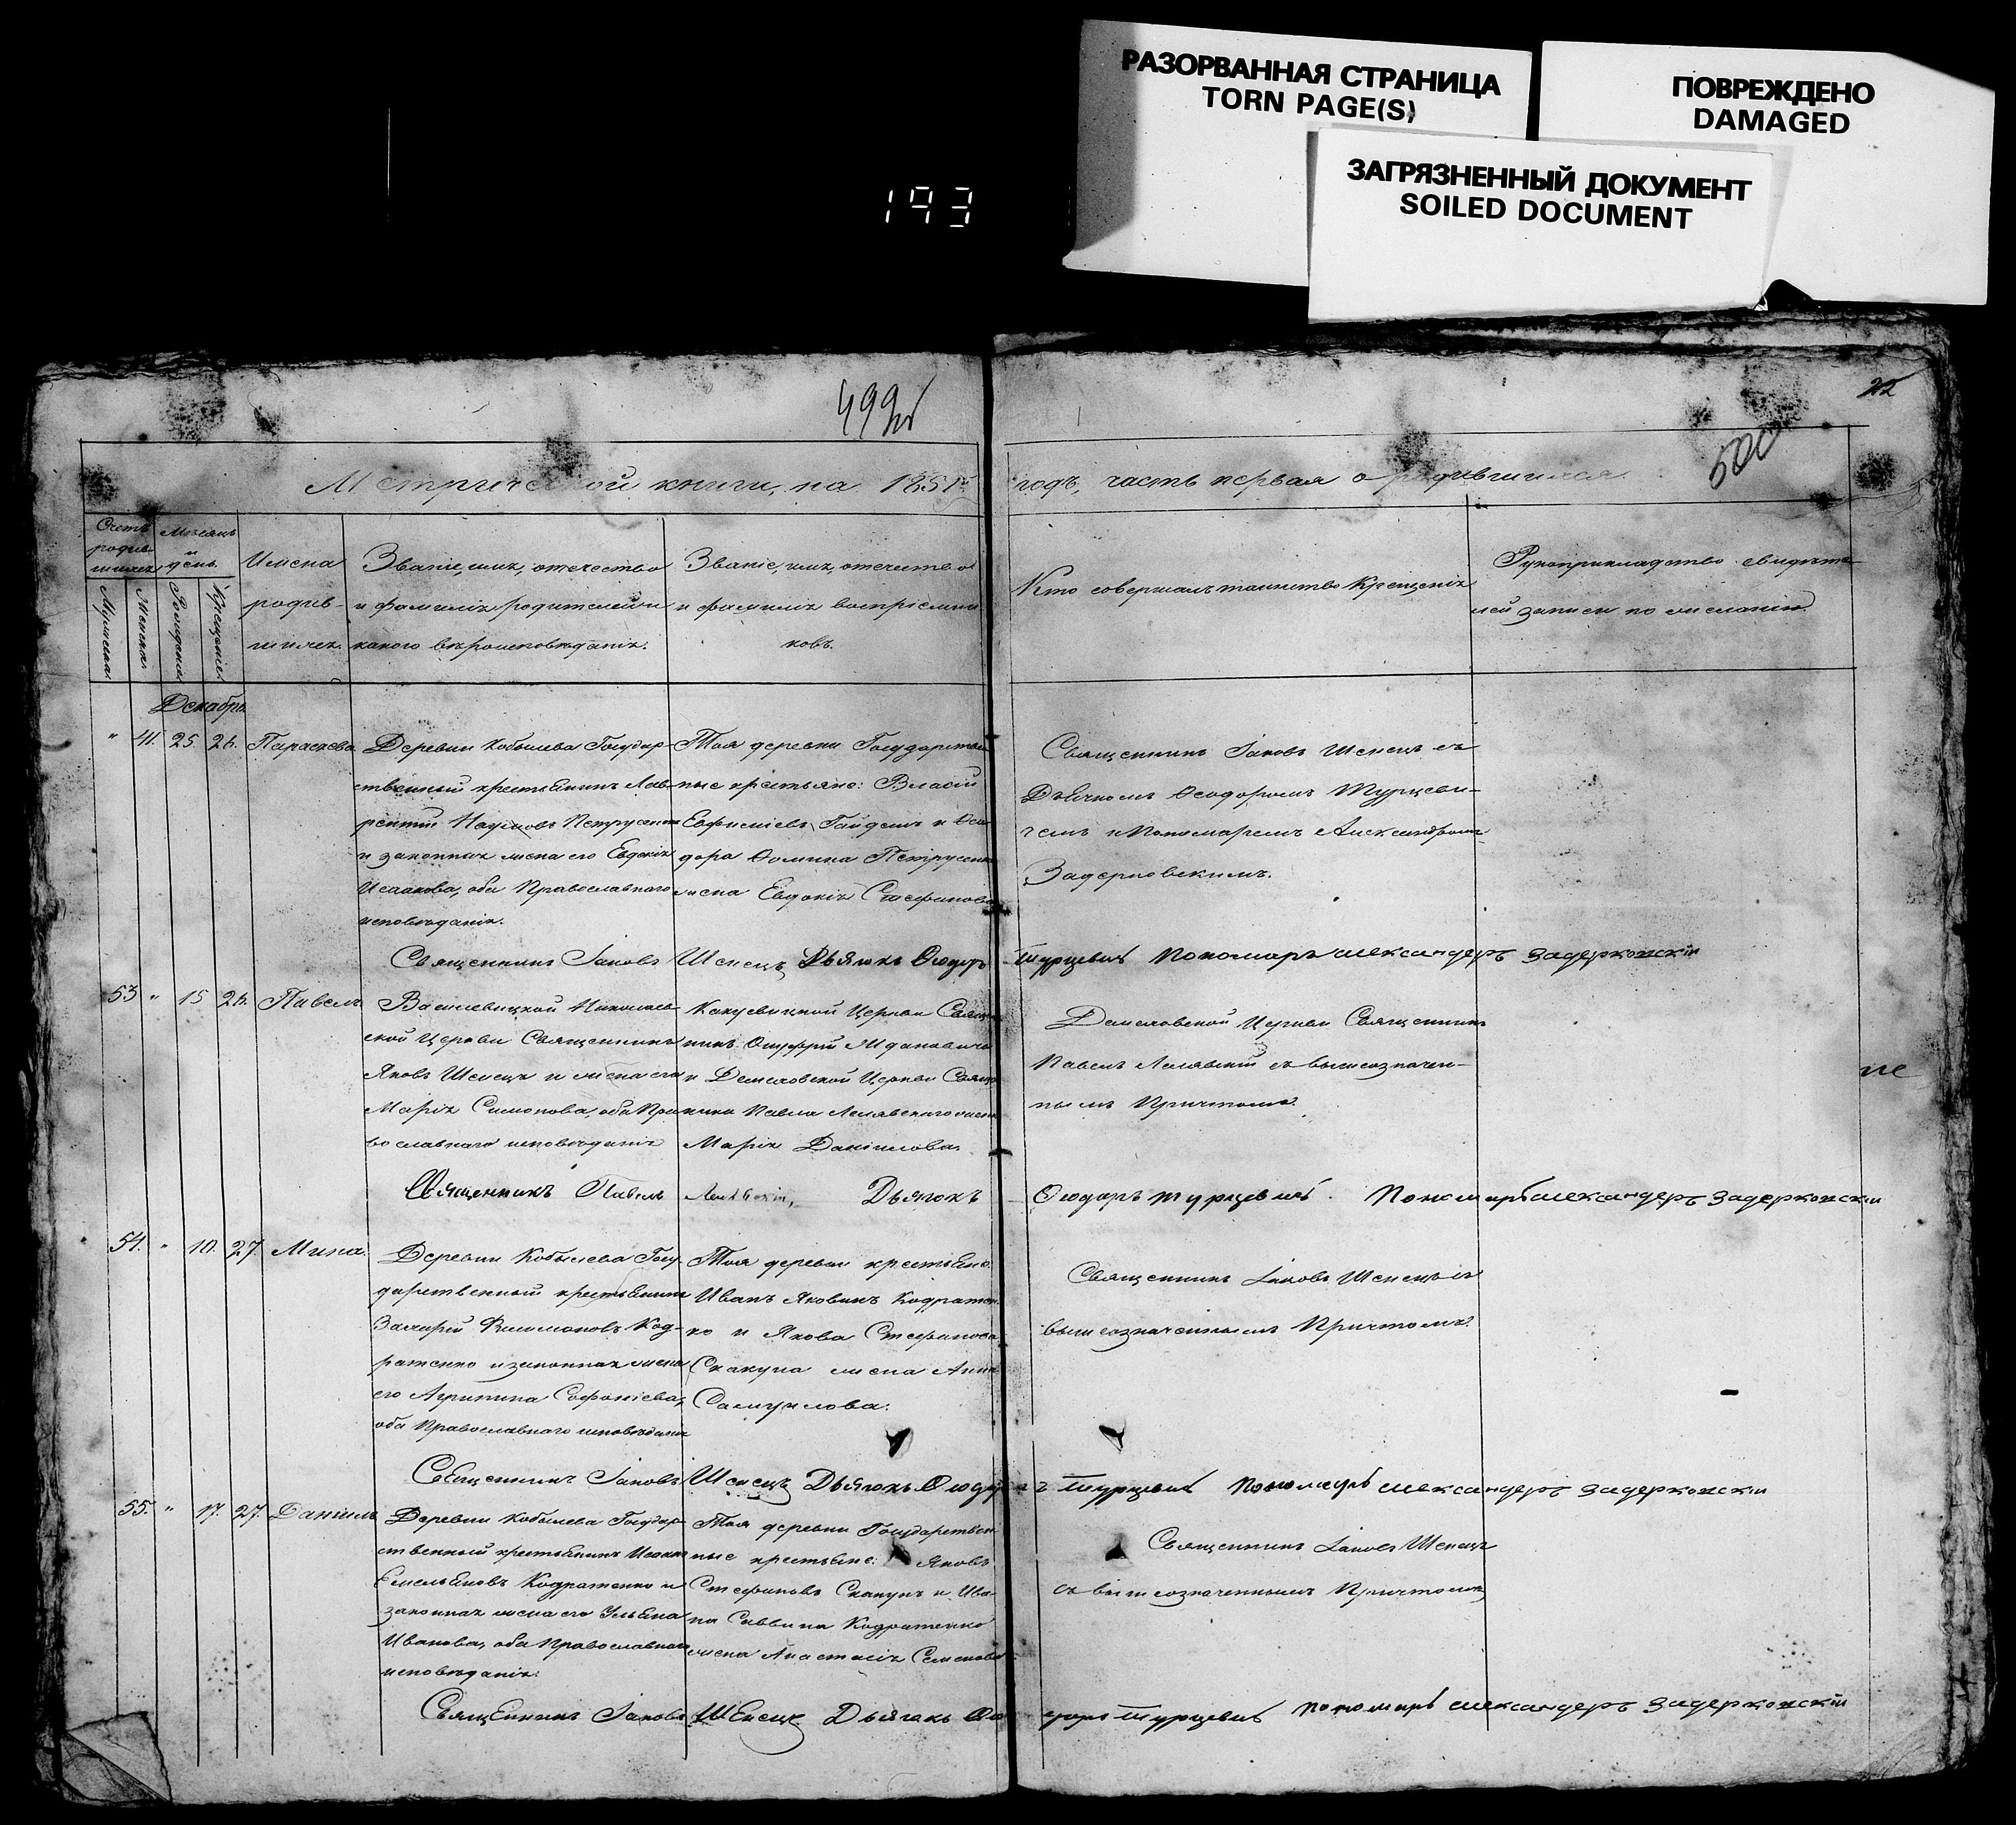 РАЗОРВАННАЯ СТРАНИЦА
TORN PAGE(S)
ПОВРЕЖДЕНО
DAMAGED
ЗАГРЯЗНЕННЫЙ ДОКУМЕНТ
SOILED DOCUMENT
193
499
22
500
Метрической книги, на 1851й
годъ, часть первая о родившихся.
Счетъ родив-шихся
Мужеска
Женска
Мѣсяцъ и день
Рожденія
Крещенія
Имена
родив-
шихся
Званіе, имя, отечество
и фамилія родителей и
какого вѣроисповѣданія.
Званіе, имя, отечество
и фамилія воспріемни
ковъ.
Кто совершалъ таинство Крещенія
Рукоприкладство свидѣте
лей записи по желанію.
Декабрь
" 41. 25. 26. Параскева
Деревни Кобылева Государ-
ственный крестьянинъ Лав-
рентій Наумовъ Петрусенко
и законная жена его Евдокія
Исаакова, оба Православнаго
исповѣданія.
Тоя деревни Государствен
ные крестьяне: Власій
Евфиміевъ Гайдешъ и Ѳео
дора Ѳомина Петрусенко
жена Евдокія Стефанова
Священникъ Іаковъ Шенецъ съ
Дьячкомъ Ѳеодоромъ Турцеви-
чемъ и Пономаремъ Александромъ
Задерковскимъ.
Священникъ Іаковъ Шенецъ Дьячокъ Ѳеодоръ Турцевичъ Пономарь Александеръ Задерковскій
53 " 15 26. Павелъ
Василевицкой Николаев-
ской Церкви Священникъ
Яковъ Шенецъ и жена его
Марія Симонова, оба Пра
вославнаго исповѣданія
Церкви Свящ
никъ Онуфрій Ждановичъ
и Демеховской Церкви Свящ
ника Павла Лелявскаго жена
Марія Даніилова.
Демеховской Церкви Священникъ
Павелъ Лелявскій съ вышеозначен-
нымъ Причтомъ.
не
Священникъ Павелъ Лелявскій, Дьячокъ Ѳеодоръ Турцевичъ. Пономарь Александеръ Задерковскій
54. " 10. 27. Мина.
Деревни Кобылева Госу-
дарственный крестьянинъ
Климоновъ Код-
ратенко и законная жена
его Агрипина Софоніева,
оба Православнаго исповѣданія
Тоя деревни крестьяне:
Иванъ Яковинъ Кодратен-
ко и Якова Стефанова
Скакуна жена Анна
Самуилова.
Священникъ Іаковъ Шенецъ съ
вышеозначеннымъ Причтомъ.
Священникъ Іаковъ Шенецъ Дьячокъ Ѳеодоръ Турцевичъ Пономарь Александеръ Задерковскій
55. " 17. 27. Даніилъ
Деревни Кобылева Государ-
ственный крестьянинъ Исаакъ
Емельяновъ Кодратенко и
законная жена его Ульяна
Иванова, оба Православнаго
исповѣданія.
Тоя деревни Государствен
ные крестьяне: Яковъ
Стефановъ Скакунъ и Ива-
на Саввина Кодратенко
жена Анастасія Семенова
Священникъ Іаковъ Шенецъ
съ вышеозначеннымъ Причтомъ
Священникъ Іаковъ Шенецъ Дьячокъ Ѳеодоръ Турцевичъ Пономарь Александеръ Задерковскій